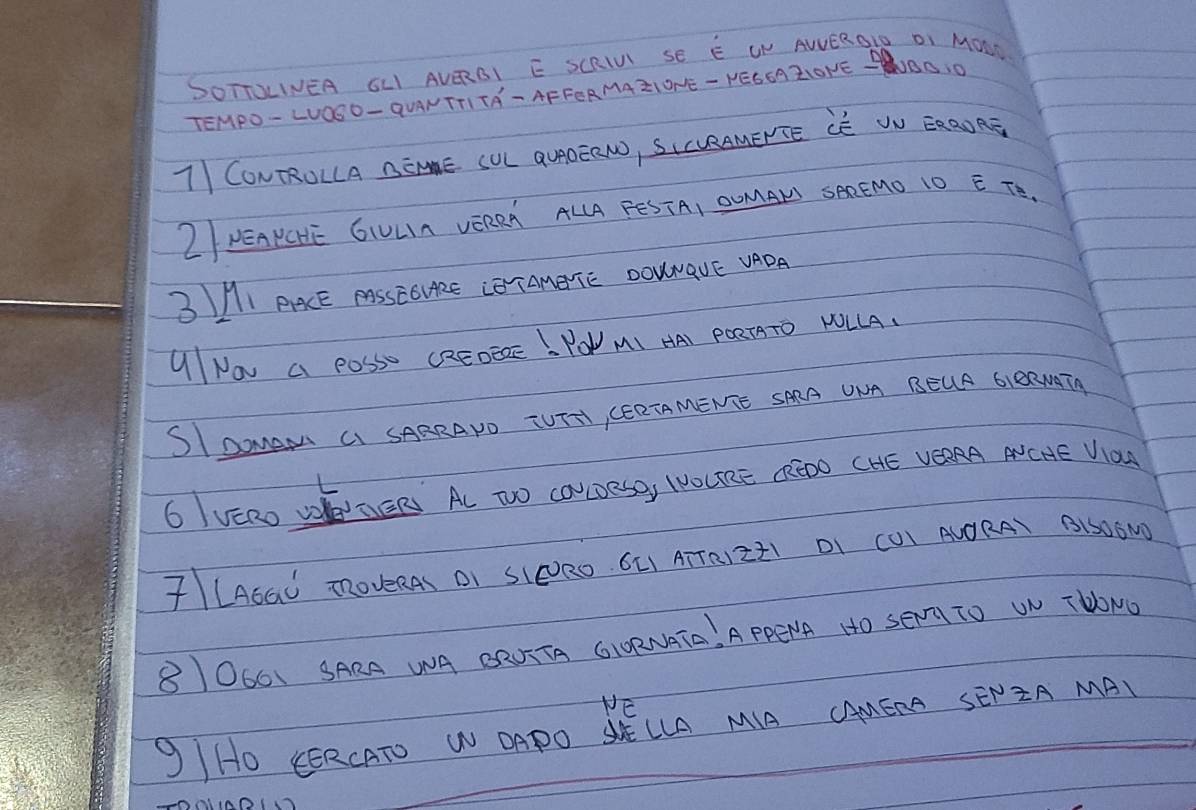 SOTTOLINEA GLI AVERBI E SCRIVI SE È UN AVVERBIO DI MODO
TEMPO - LUOGO - QUANTTITÁ - AFFERMAZIONE - NEGGAZIONE - DUBBIO
1) CONTROLLA BENE SUL QUADERNO, SICURAMENTE C'È UN ERRORE.
2) NEANCHE GIULIA VERRÁ ALLA FESTA, DOMANI SAREMO IO E TE.
3) MI PIACE PASSEGGIARE LENTAMENTE DOVUNQUE VADA
4) NON CI POSSO CREDERE! NON MI HAI PORTATO NULLA.
5) DOMANI CI SARRANO TUTTI, CERTAMENTE SARA UNA BELLA GIORNATA
6) VERO VOLENTIERI AL TUO CONCORSO, INOLTRE CREDO CHE VERRA ANCHE VIOLA
7) LAGGIÙ TROVERAI DI SICURO GLI ATTRIZZI DI CUI AVVRAI BISOGNO
8) OGGI SARA UNA BRUTTA GIORNATA! APPENA HO SENTITO UN TUONO
9) HO CERCATO UN DADO NELLA MIA CAMERA SENZA MAI
TROVARLO